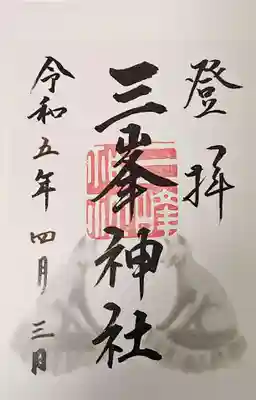 登拝
三峯神社
令和五年四月三日